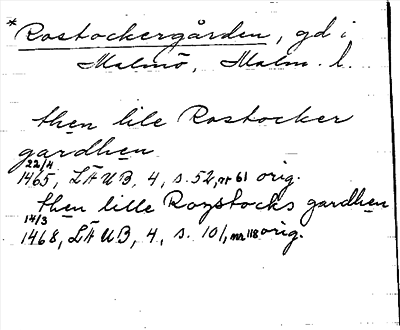 * Rostockergården, gd i
Malmö, Malm. l.
then lile Rostocker
gardhen
22/4
1465, LÄUB, 4, s. 52, nr 61 orig.
then lille Roystocks gardhen
14/3
1468, LÄUB, 4, s. 101, nr 118 orig.